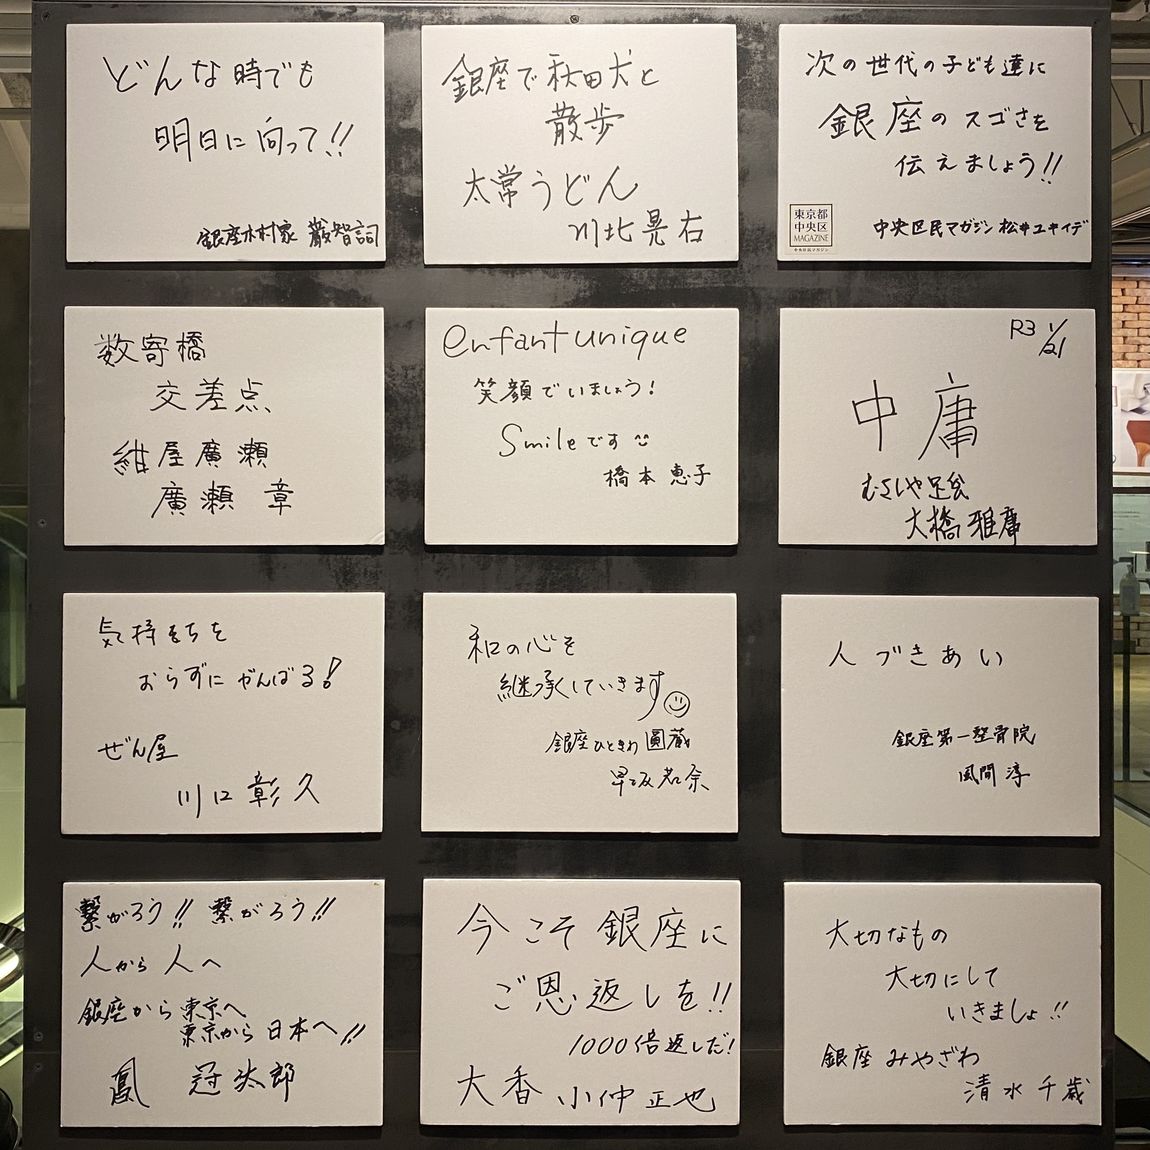 どんな時でも
明日に向って!!
銀座木村家 巌智詞
銀座で秋田犬と
散歩
太常うどん
川北晃右
次の世代の子ども達に
銀座のスゴさを
伝えましょう!!
東京都
中央区
MAGAZINE
中央区民マガジン
中央区民マガジン 松井ユキイデ
数寄橋
交差点
紺屋廣瀬
廣瀬 章
enfant unique
笑顔でいましょう!
Smileです
橋本 恵子
R3 1/21
中庸
むさしや足袋
大橋 雅庸
気持ちを
おらずに がんばる!
ぜん屋
川口彰久
和の心を
継承していきます
銀座ひときわ 圓蔵
早坂若奈
人づきあい
銀座第一整骨院
風間 淳
繋がろう!! 繋がろう!!
人から人へ
銀座から東京へ
東京から日本へ!!
鳳 冠汰郎
今こそ銀座に
ご恩返しを!!
1000倍返しだ!
大香 小仲正也
大切なもの
大切にして
いきましょ!!
銀座 みやざわ
清水千歳